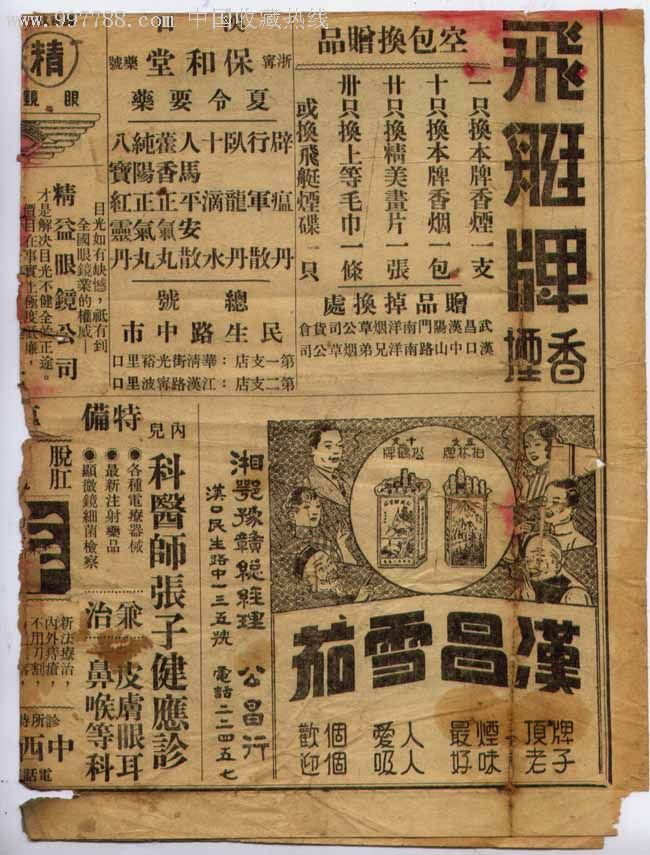 www.997788.com 中国收藏热线
飛艇牌
香煙
空包換贈品
一只換本牌香煙一支
十只換本牌香烟一包
廿只換精美畫片一張
卅只換上等毛巾一條
或換飛艇煙碟一只
贈品掉換處
武昌漢陽門南洋烟草公司貨倉
漢口中山路南洋兄弟烟草公司
浙甯
保和堂
藥號
夏令要藥
辟瘟丹
行軍散
臥龍丹
十滴水
人馬平安散
藿香正氣丸
純陽正氣丸
八寶紅靈丹
總號
民生路中市
第一支店：華清街光裕里口
第二支店：江漢路甯波里口
精
眼鏡
目光如有缺憾，祇有到
全國眼鏡業的權威—
精益眼鏡公司
才是解決目光不健全的正途。
價目在事實上極度低廉，
五台
柏林牌
十支
松鶴牌
漢昌雪茄
牌子頂老
煙味最好
人人愛吸
個個歡迎
湘鄂豫贛總經理
公昌行
漢口民生路中一三五號
電話二二四五七
內兒科醫師張子健應診
特備
●各種電療器械
●最新注射藥品
●顯微鏡細菌檢察
兼治
皮膚眼耳
鼻喉等科
脫肛
新法療治，
內外痔瘡，
不用刀割，
診所
中西
電話